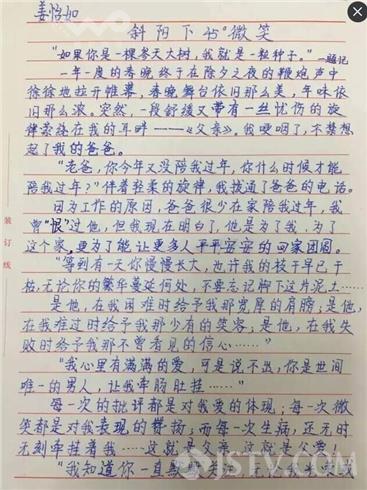 姜怡如
斜阳下45°微笑
“如果你是一棵参天大树，我就是一粒种子。”——题记
一年一度的春晚终于在除夕之夜的鞭炮声中
徐徐地拉开帷幕，春晚舞台依旧那么美，年味依
旧那么浓。突然，一段舒缓又带有一丝忧伤的旋
律萦绕在我的耳畔——《父亲》。我哽咽了，不禁想
起了我的爸爸。
“老爸，你今年又没陪我过年，你什么时候才能
陪我过年？”伴着轻柔的旋律，我拨通了爸爸的电话。
因为工作的原因，爸爸很少在家陪我过年，我
曾“恨”过他，但我现在明白了，他是为了我，为了
这个家，更为了能让更多人平平安安的回家团圆。
“等到有一天你慢慢长大，也许我的枝干早已干
枯，无论你的繁华蔓延何处，不要忘记脚下这片泥土……
是他，在我困难时给予我那宽厚的肩膀；是他，
在我难过时给予我那少有的笑容；是他，在我失
败时给予我那不曾看见的信心……”
“我心里有满满的爱，可是说不出，你是世间
唯一的男人，让我牵肠肚挂……”
每一次的批评都是对我爱的体现；每一次微
笑都是对我表现的赞扬；而每一次生病，还无时
无刻牵挂着我……这就是父亲，这就是父爱。
“我知道你一直
装订线
JSTV.COM